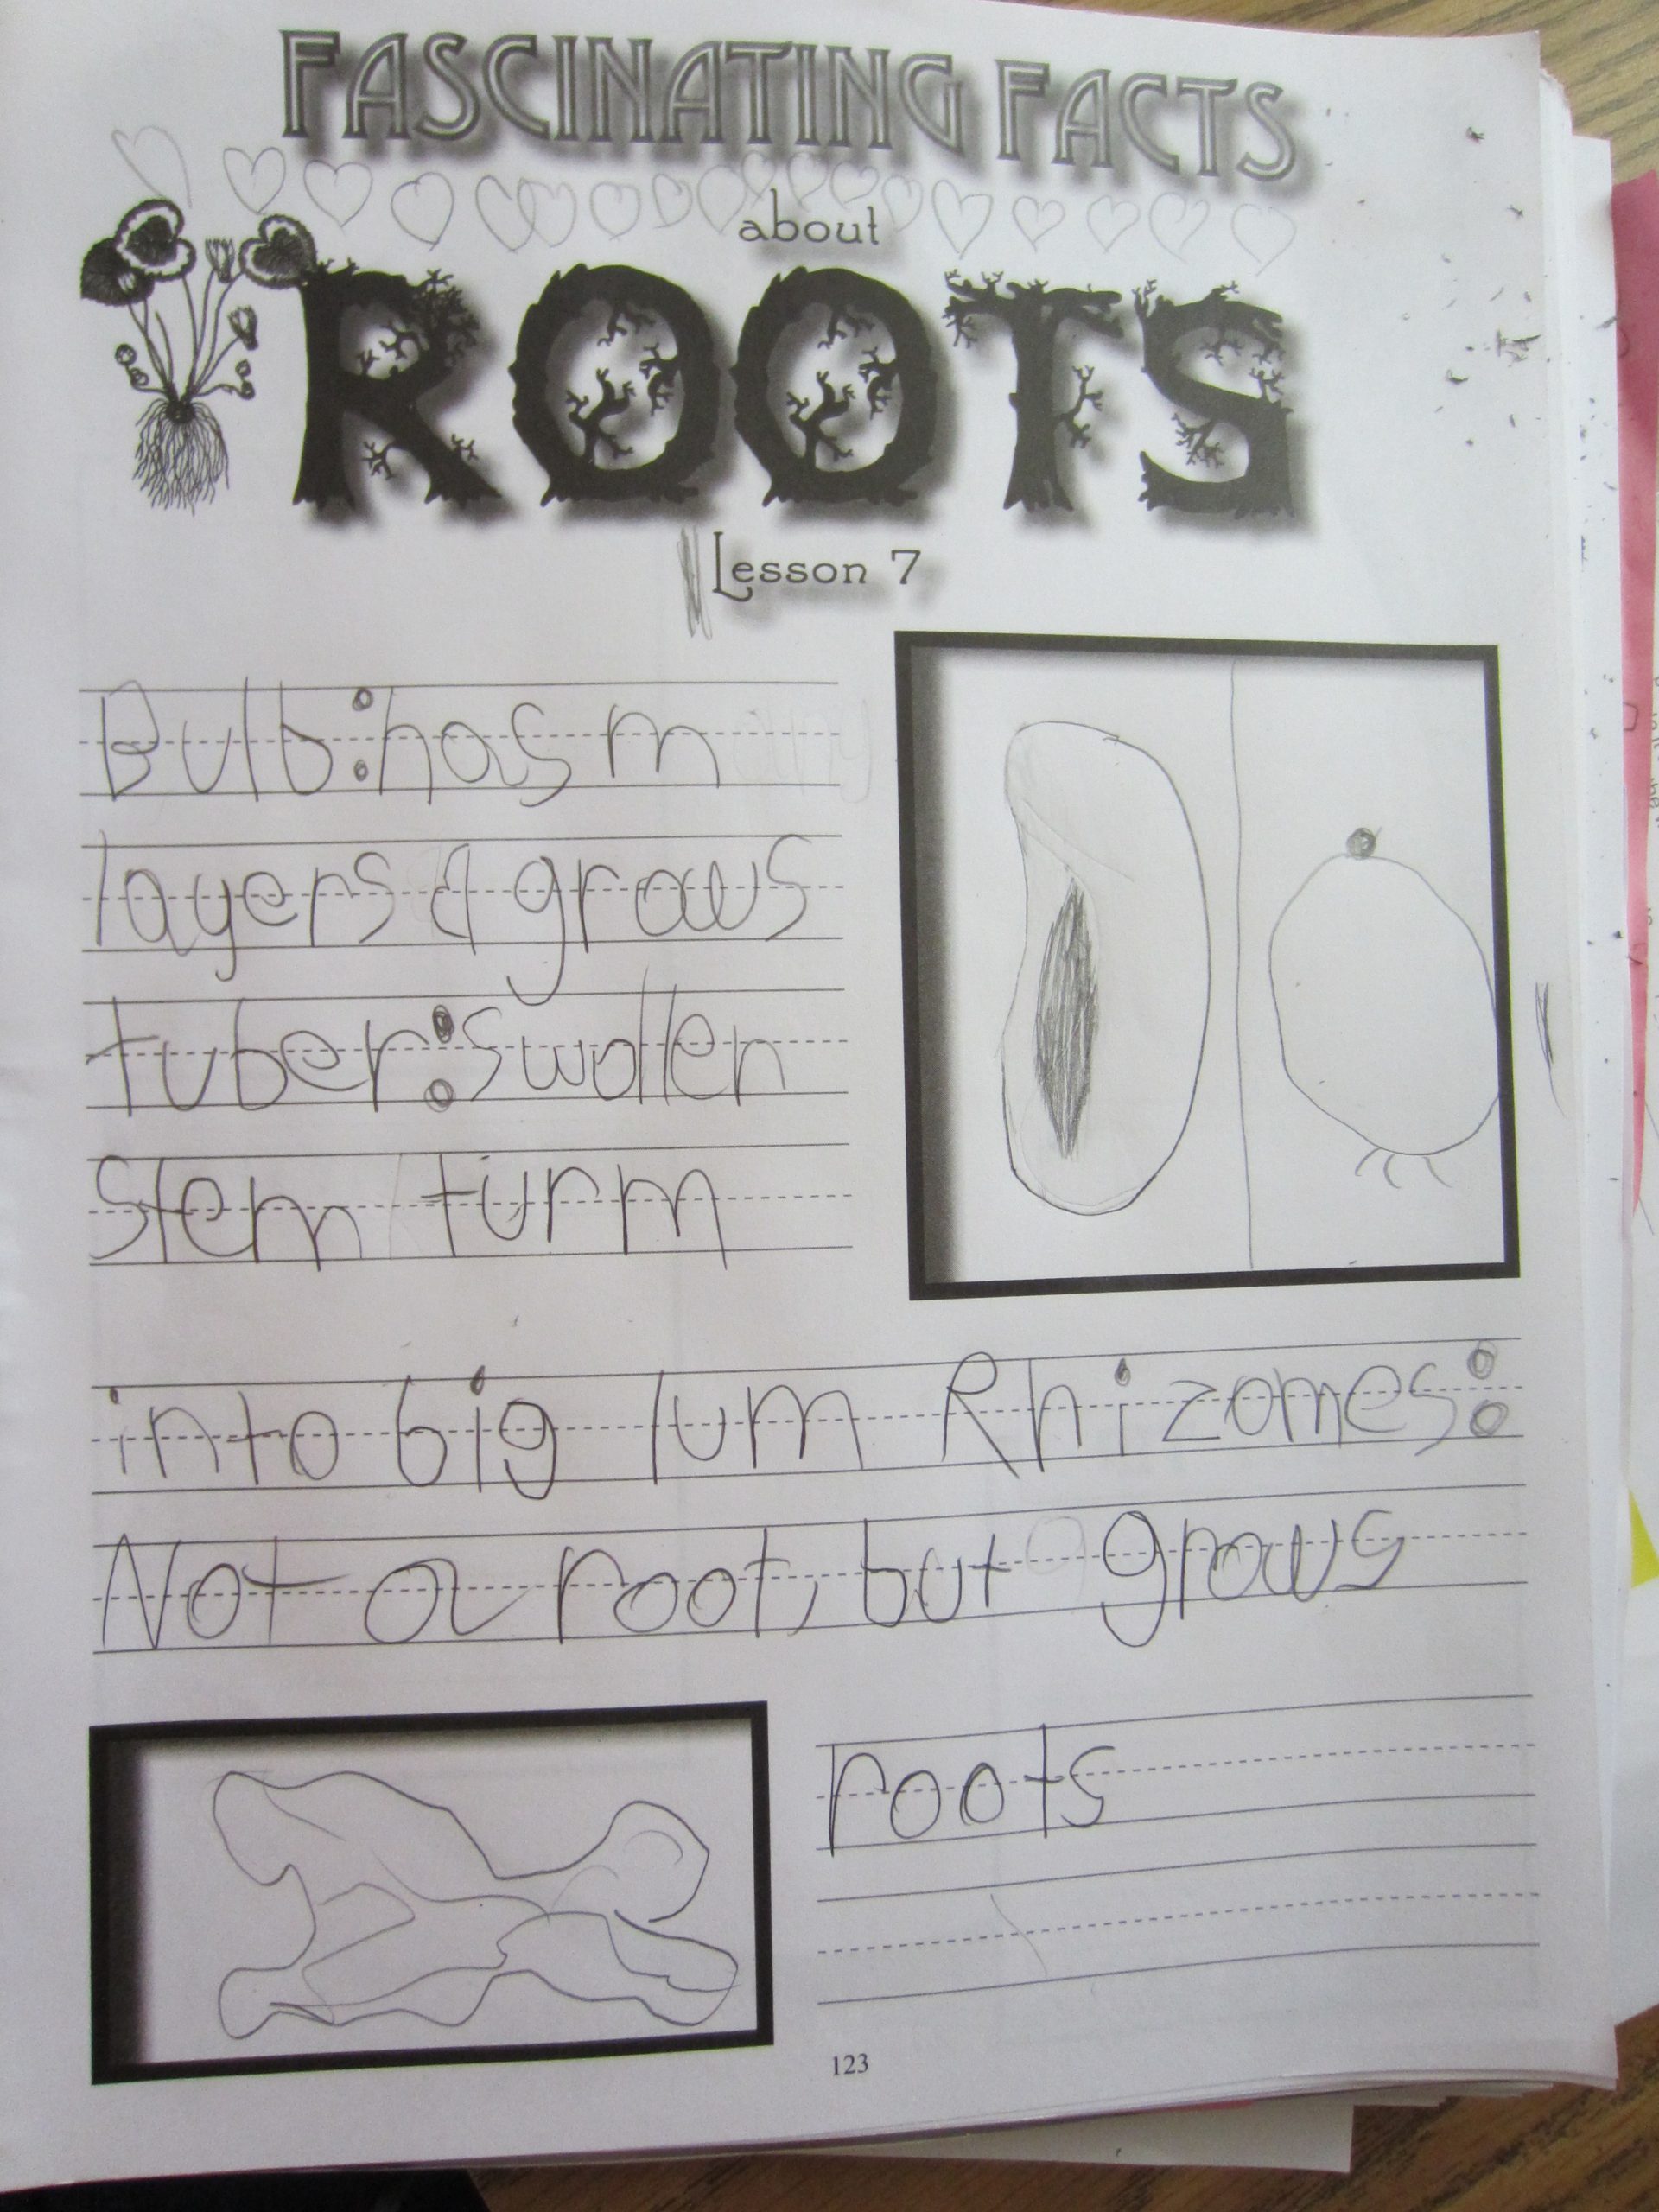 FASCINATING FACTS
about
ROOTS
Lesson 7
Bulb: has m
layers & grows
tuber: swollen
stem turm
into big lum Rhizomes:
Not a root, but grows
roots
123